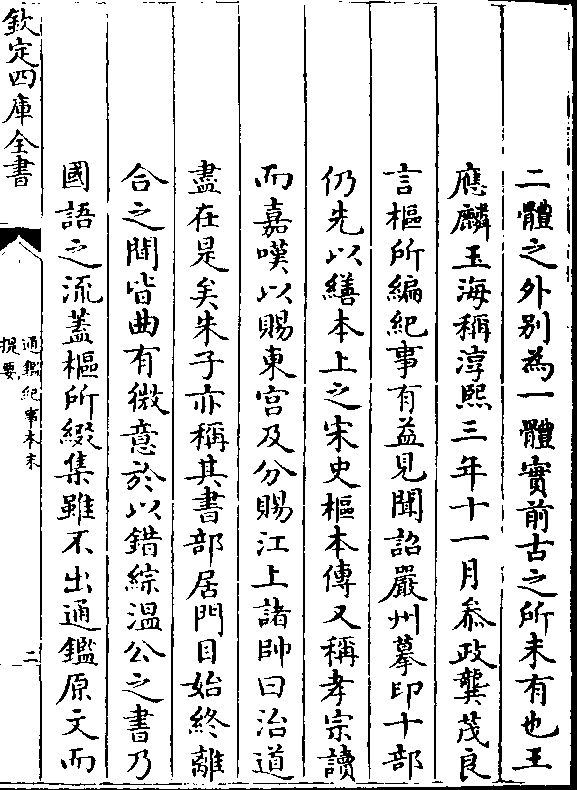 二體之外别為一體實前古之所未有也王
應麟玉海稱淳熙三年十一月叅政龔茂良
言樞所編紀事有益見聞詔嚴州摹印十部
仍先以繕本上之宋史樞本傳又稱孝宗讀
而嘉嘆以賜東宫及分賜江上諸帥曰治道
盡在是矣朱子亦稱其書部居門目始終離
合之間皆曲有微意於以錯綜溫公之書乃
國語之流蓋樞所綴集雖不出通鑑原文而
欽定四庫全書
通鑑紀事本末
提要
二